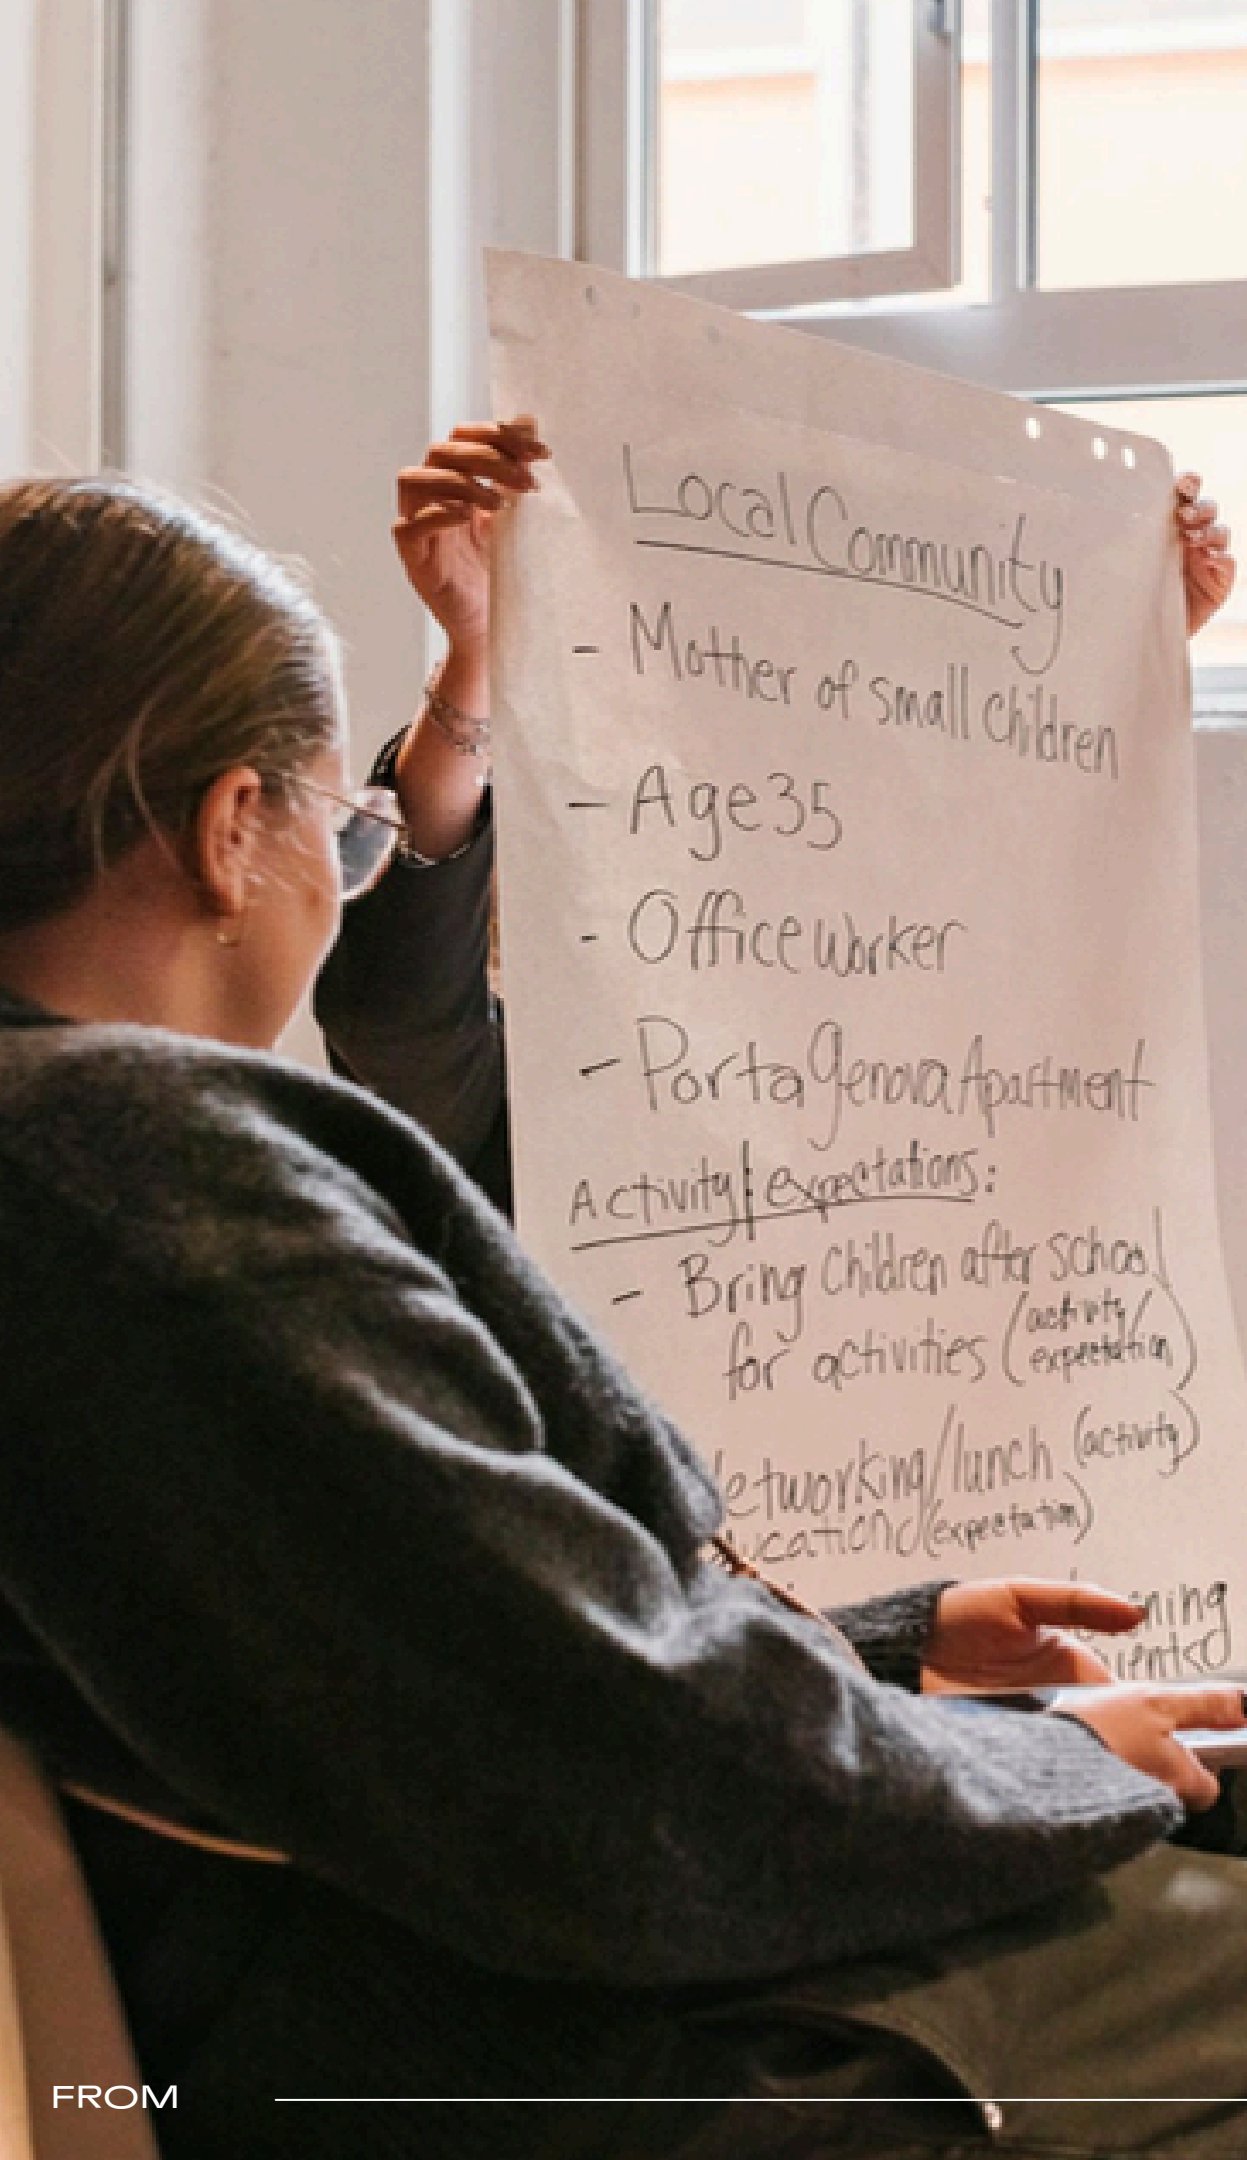 Local Community
- Mother of small children
- Age 35
- Office worker
- Porta genova Apartment
Activity/expectations:
- Bring children after school
for activities (activity/
expectation)
/lunch (activity)
(expectation)
FROM